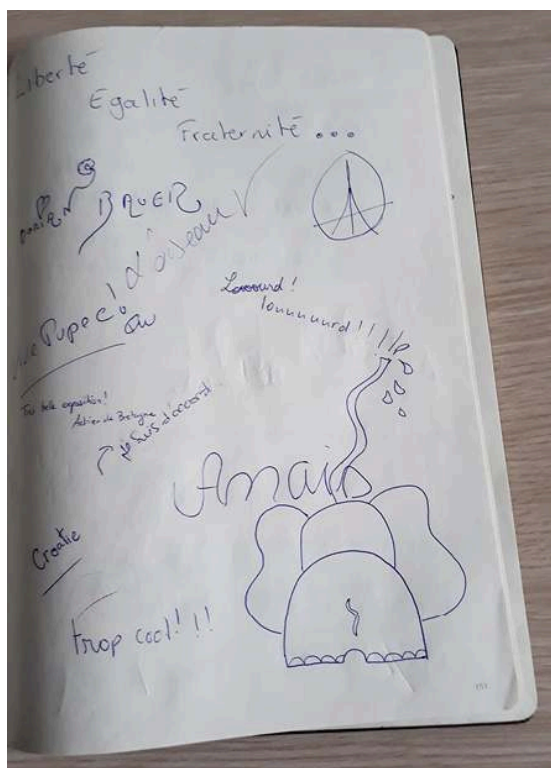 Liberté
Égalité
Fraternité...
BAUER
d'oiseau
Looourd!
louuuuurd!!!!
Pupec!
Très belle exposition!
Adrien de Bretagne
je suis d'accord
Anaïs
Croatie
trop cool!!!
151